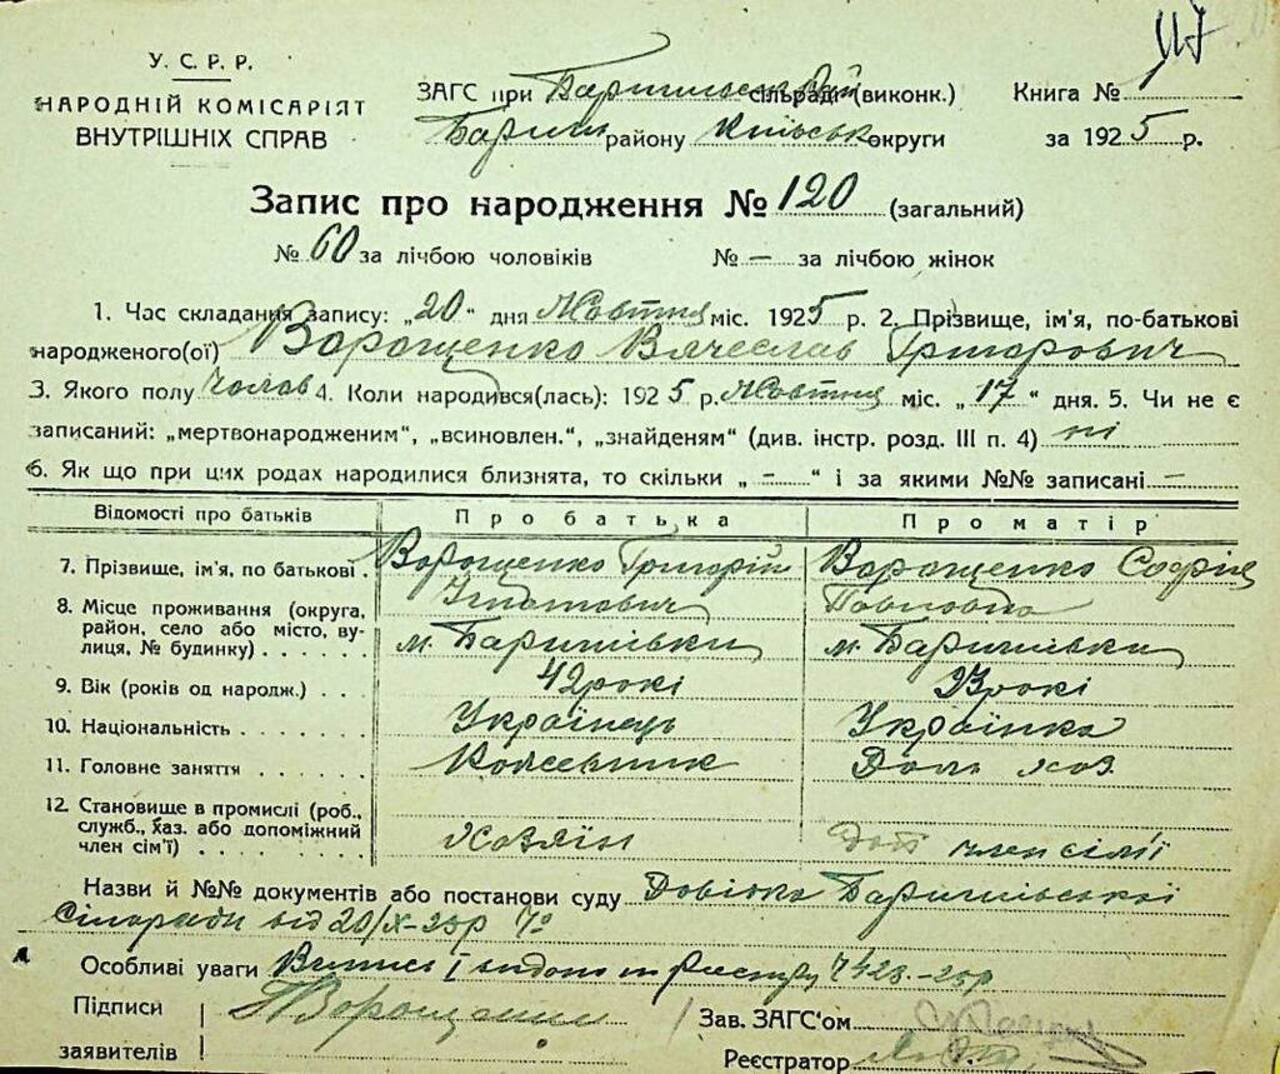 117
У. С. Р. Р.
НАРОДНІЙ КОМІСАРІЯТ
ВНУТРІШНІХ СПРАВ
ЗАГС при Баришівській сільраді (виконк.)
Бариш району Київськ округи
Книга № 1
за 1925 р.
Запис про народження № 120 (загальний)
№ 60 за лічбою чоловіків № — за лічбою жінок
1. Час складання запису: „20“ дня Жовтня міс. 1925 р. 2. Прізвище, ім'я, по-батькові
народженого(ої) Ворощенко Вячеслав Григорович
3. Якого полу чолов 4. Коли народився(лась): 1925 р. Жовтня міс. „17“ дня. 5. Чи не є
записаний: „мертвонародженим“, „всиновлен.“, „знайденям“ (див. інстр. розд. III п. 4) ні
6. Як що при цих родах народилися близнята, то скільки „—“ і за якими №№ записані —
Відомості про батьків Про батька Про матір
7. Прізвище, ім'я, по батькові . Ворощенко Григорій Ворощенко Софія
Гнатович Павловна
8. Місце проживання (округа, район, село або місто, вулиця, № будинку) . . . . . . м. Баришівки м. Баришівки
9. Вік (років од народж.) . . . 42 рокі 23 рокі
10. Національність . . . . . . . Українець Українка
11. Головне заняття . . . . . . Кожевник Дом хоз.
12. Становище в промислі (роб., служб., хаз. або допоміжний член сім'ї) . . . . . . . . . Хозяїн Доп член сімї
Назви й №№ документів або постанови суду Довідка Баришівської
Сільради від 20/X-25р
Особливі уваги Випись і видано
Підписи
заявителів
Г Ворощенко
Зав. ЗАГС'ом
Реєстратор